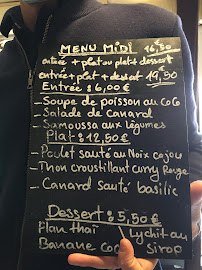 MENU MIDI 16,50
entrée + plat ou plat + dessert
entrée + plat + dessert 19,50
Entrée : 6,00 €
- Soupe de poisson au Coco
- Salade de Canard
- Samoussa aux légumes
Plat : 12,50 €
- Poulet sauté au Noix cajou
- Thon croustillant curry Rouge
- Canard sauté basilic
Dessert : 5,50 €
Flan thaï Lychit au
Banane Coco Sirop